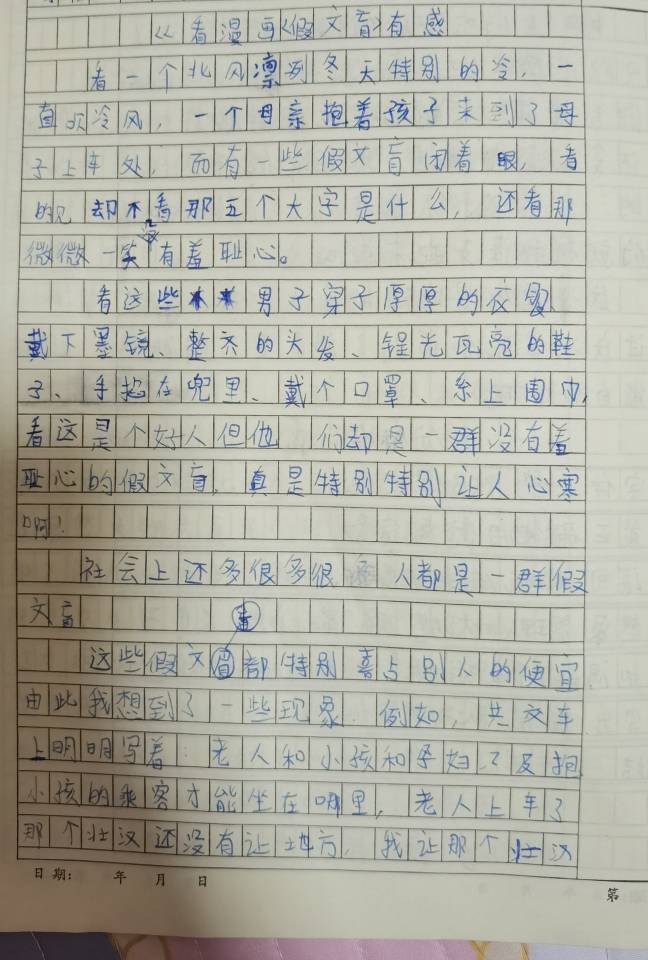 《看漫画《假文盲》有感
看一个北风凛冽冬天特别的冷,一
直吹冷风,一个母亲抱着孩子来到了母
子上车处,而有一些假文盲闭着眼,看
的见却不看那五个大字是什么,还看那
微微一笑没有羞耻心。
看这些男子穿子厚厚的衣服、
戴下墨镜、整齐的头发、锃光瓦亮的鞋
子、手抱在兜里、戴个口罩、系上围巾,
看这是个好人但他们却是一群没有羞
耻心的假文盲,真是特别特别让人心寒
啊!
社会上还多很多很多人都是一群假
文盲
盲
这些假文盲都特别喜占别人的便宜
由此我想到了一些现象.例如,共交车
上明明写着:老人和小孩和孕妇、及抱
小孩的乘客才能坐在哪里,老人上车了
那个壮汉还没有让地方,我让那个壮汉
日期: 年 月 日
第